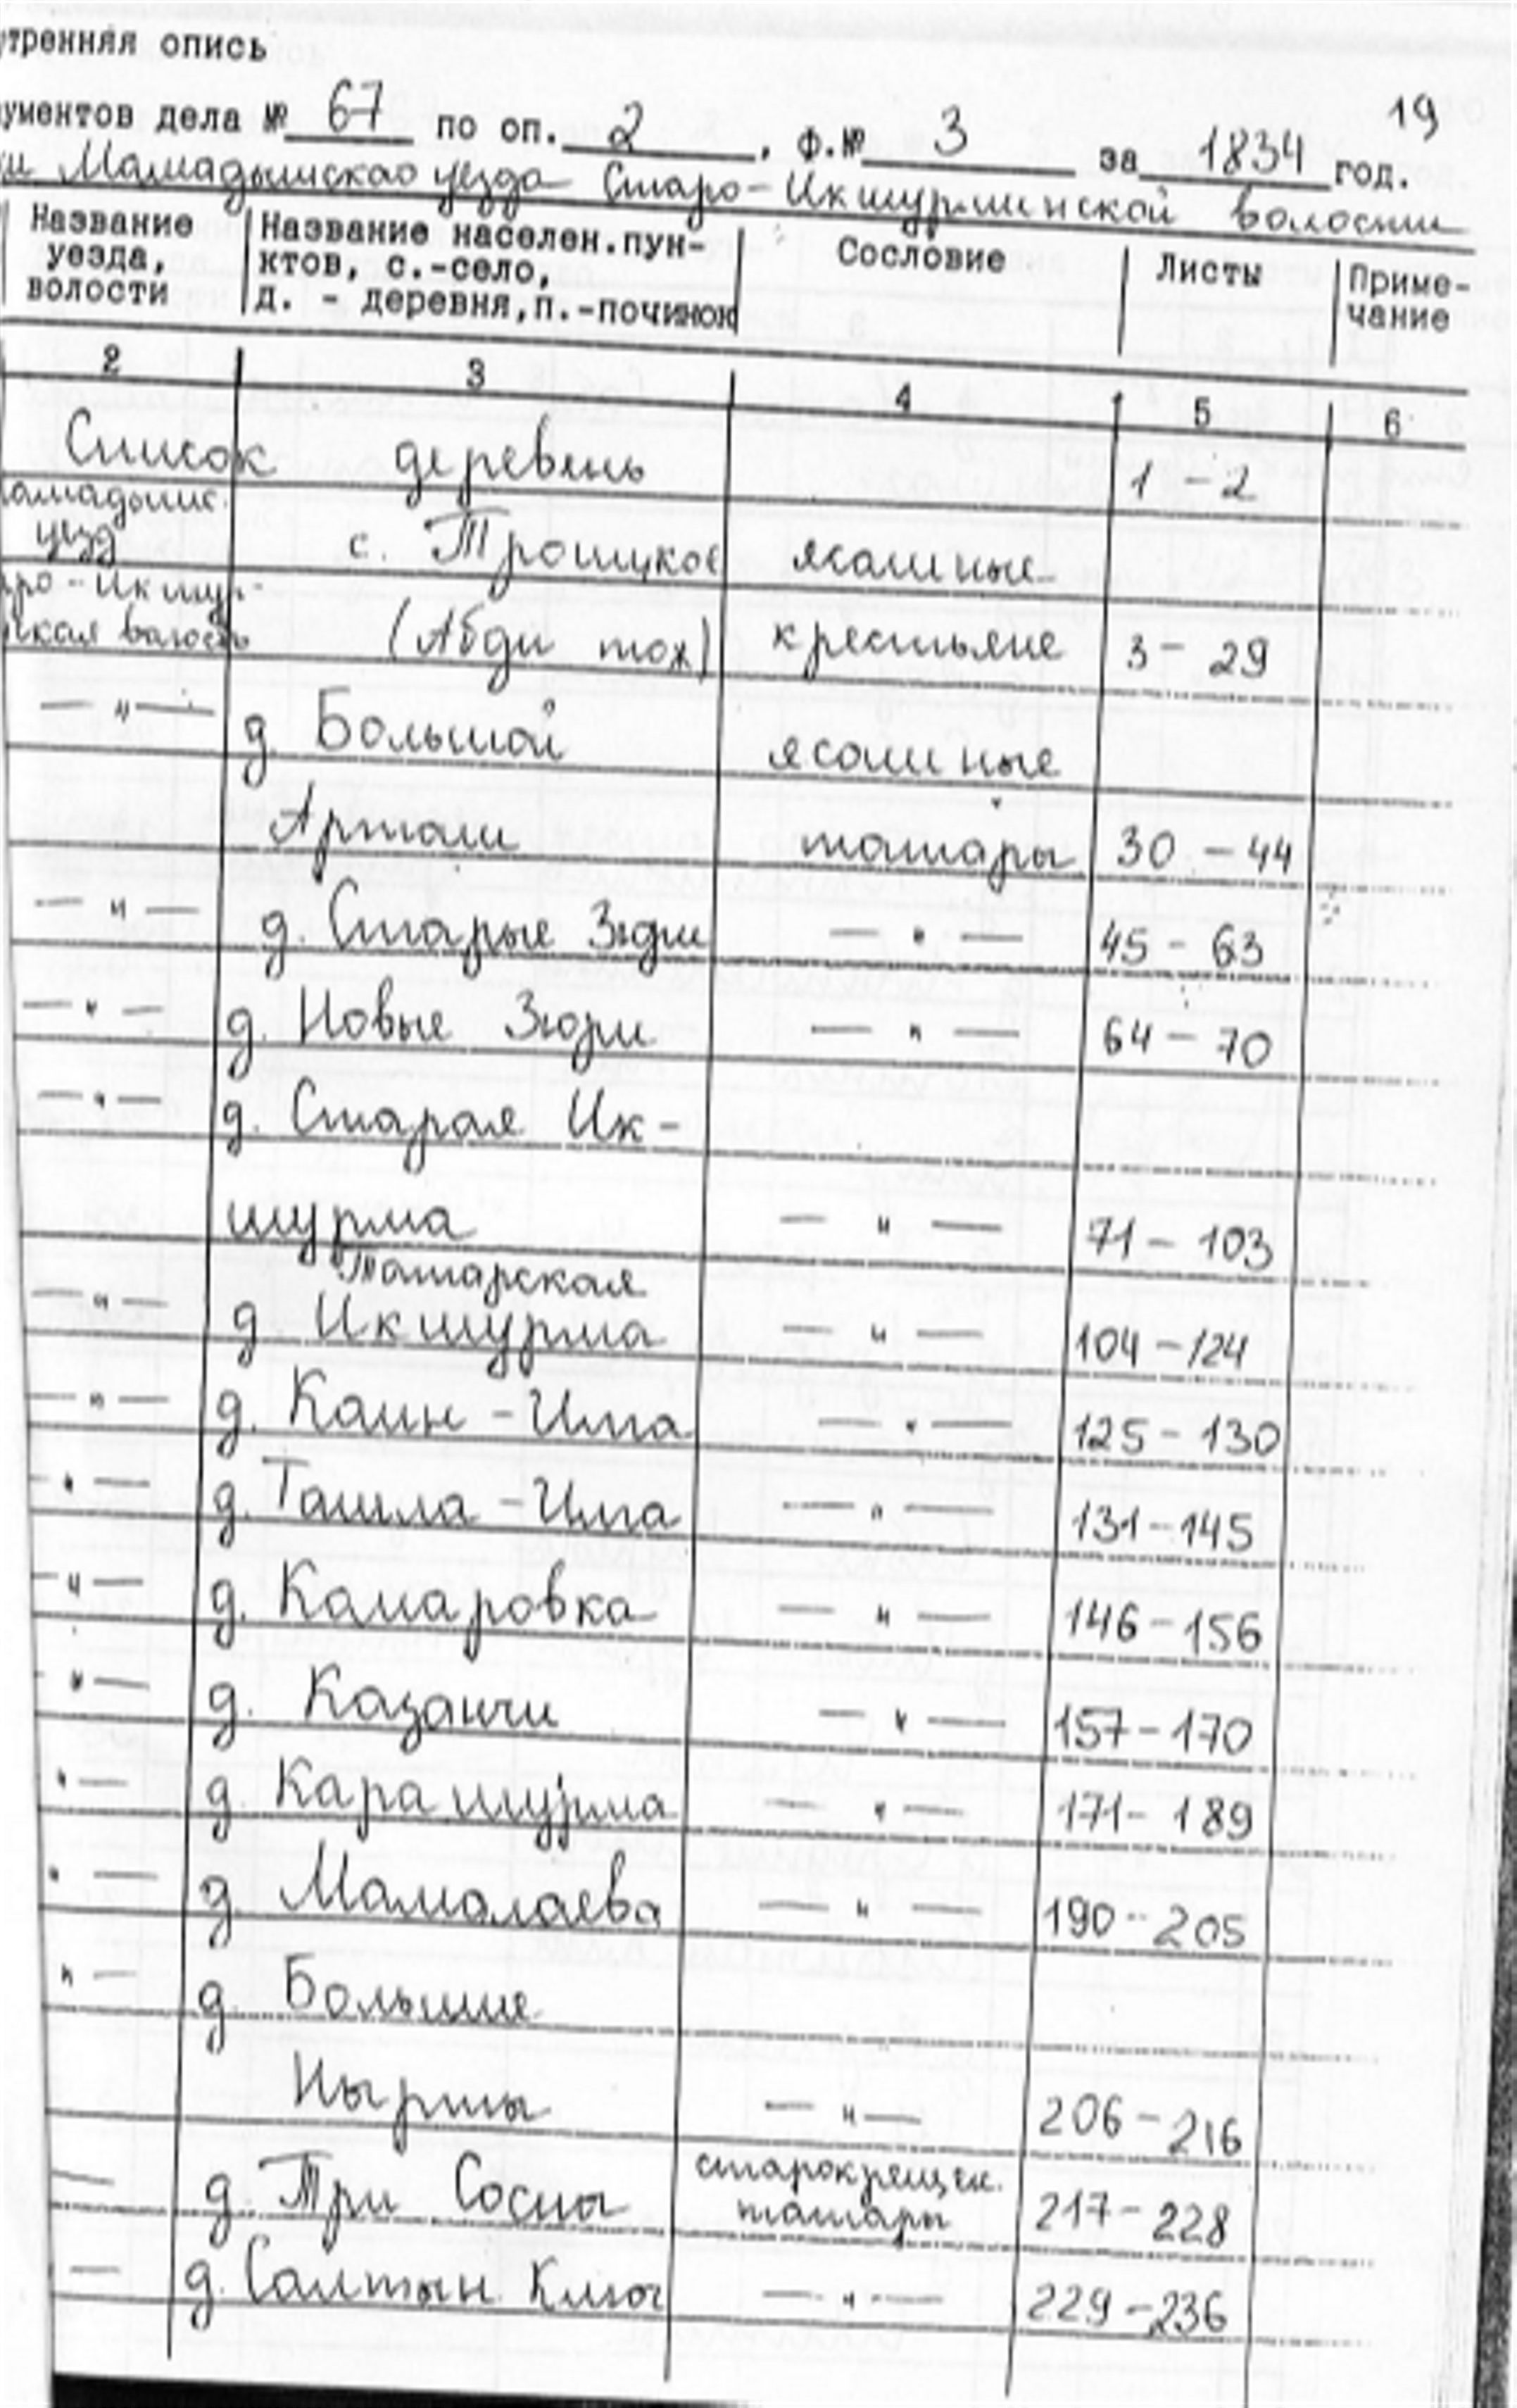 утренняя опись
19
ументов дела № 67 по оп. 2, ф.№ 3 за 1834 год.
Мамадышскао уезда Старо-Икшурминской волости
Название уезда, волости | Название населен.пунктов, с.-село, д. - деревня,п.-починок | Сословие | Листы | Приме-чание
2 | 3 | 4 | 5 | 6
Список деревень 1 - 2
амадышс. уезд с. Троицкое ясашные
ро-Икшур- ская волость (Абди тож) крестьяне 3 - 29
— " — д. Большой ясашные
Арташ татары 30 - 44
— " — д. Старые Зюри — " — 45 - 63
— " — д. Новые Зюри — " — 64 - 70
— " — д. Старая Ик-
шурма — " — 71 - 103
Татарская
— " — д. Икшурма — " — 104 - 124
— " — д. Каин - Илга — " — 125 - 130
" — д. Ташла - Илга — " — 131 - 145
— " — д. Камаровка — " — 146 - 156
" — д. Казанчи — " — 157 - 170
" — д. Карашурма — " — 171 - 189
" — д. Мамалаева — " — 190 - 205
" — д. Большие
Нырты — " — 206 - 216
— д. Три Сосны старокрещен. татары 217 - 228
— д. Салтын Ключ — " — 229 - 236